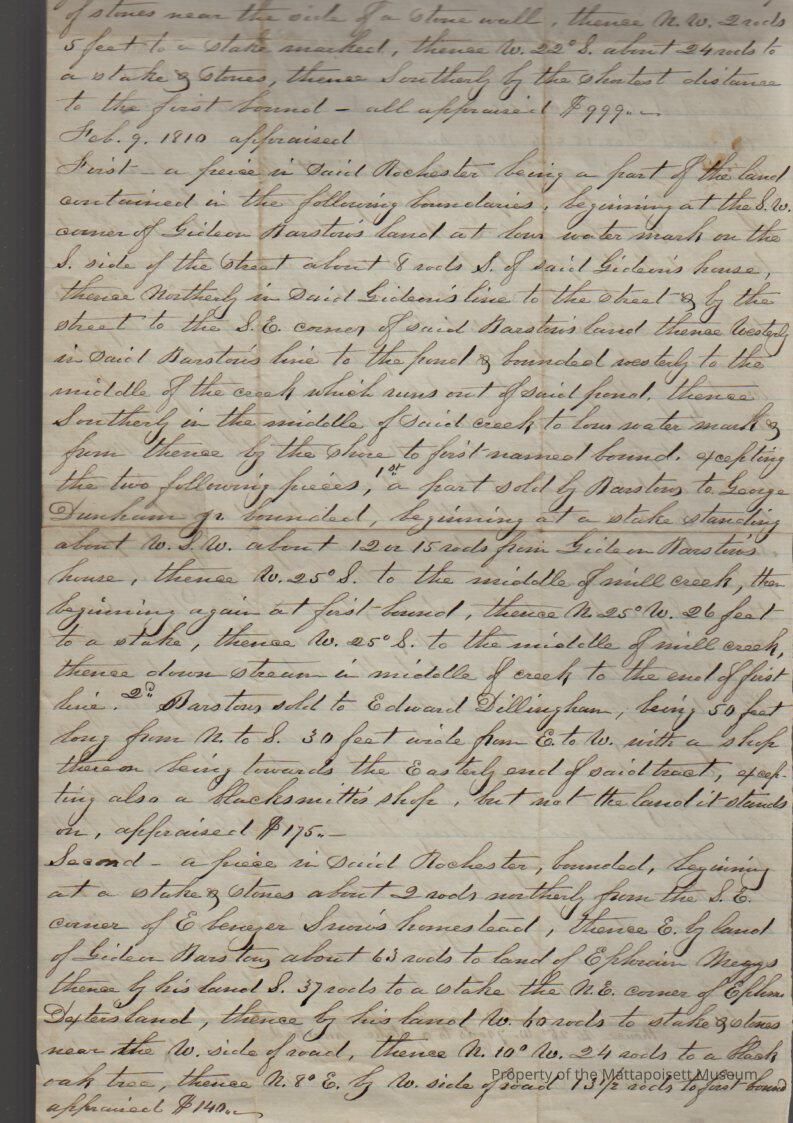 of stones near the side of a stone wall, thence N.W. 2 rods
5 feet to a stake marked, thence W. 22° S. about 24 rods to
a stake & stones, thence Southerly by the shortest distance
to the first bound – all appraised $999..–
Feb. 9. 1810 appraised
First – a peice in said Rochester being a part of the land
contained in the following boundaries, beginning at the S.W.
corner of Gideon Barstow's land at low water mark on the
S. side of the street about 8 rods S. of said Gideon's house,
thence Northerly in said Gideon's line to the street & by the
street to the S.E. corner of said Barstow's land thence Westerly
in said Barstow's line to the pond & bounded westerly to the
middle of the creek which runs out of said pond, thence
Southerly in the middle of said creek to low water mark &
from thence by the shore to first named bound. excepting
the two following pieces, 1st a part sold by Barstow to George
Dunham jr. bounded, beginning at a stake standing
about W.S.W. about 12 or 15 rods from Gideon Barstow's
house, thence W. 25° S. to the middle of mill creek, then
beginning again at first bound, thence N. 25° W. 26 feet
to a stake, thence W. 25° S. to the middle of mill creek,
thence down stream in middle of creek to the end of first
line. 2d Barstow sold to Edward Dillingham, being 50 feet
long from N. to S. 30 feet wide from E. to W. with a shop
thereon being towards the Easterly end of said tract, excep-
ting also a blacksmith's shop, but not the land it stands
on, appraised $175..–
Second – a piece in said Rochester, bounded, beginning
at a stake & stones about 2 rods northerly from the S.E.
corner of Ebenezer Snow's homestead, thence E. by land
of Gideon Barstow about 63 rods to land of Ephraim Meggs
thence by his land S. 37 rods to a stake the N.E. corner of Ephm
Dexter's land, thence by his land W. 60 rods to stake & stones
near the W. side of road, thence N. 10° W. 24 rods to a black
oak tree, thence N. 8° E. by W. side of road 13 1/2 rods to first bound
appraised $140..–
Property of the Mattapoisett Museum